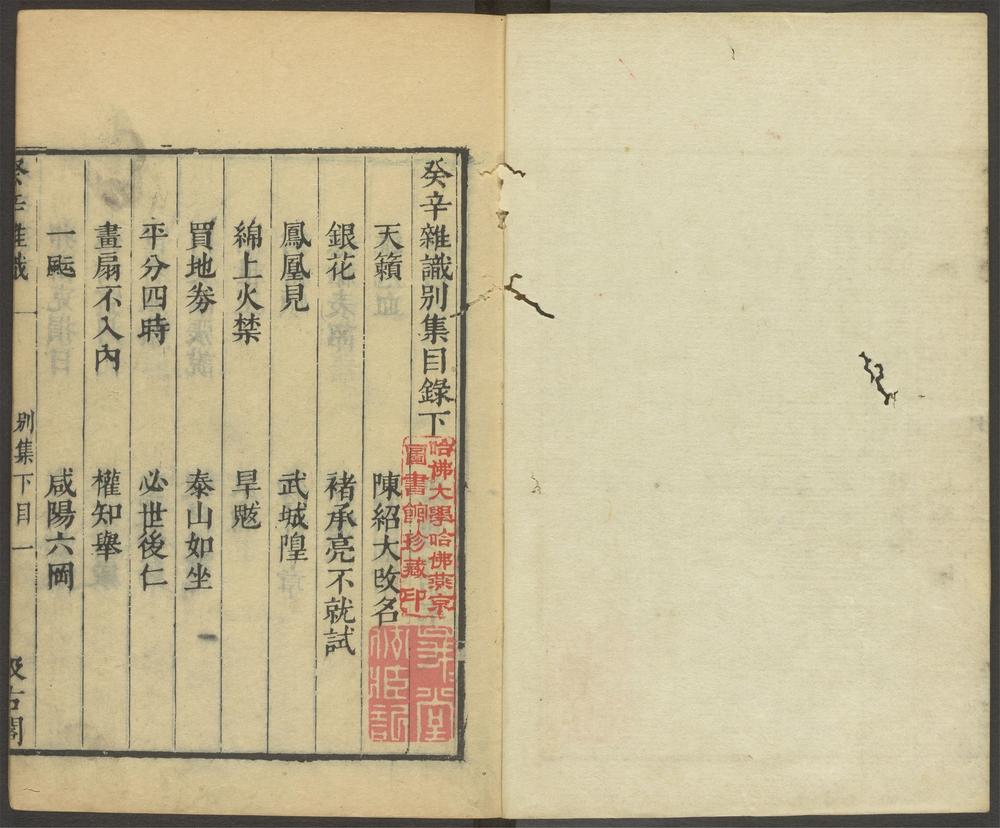 癸辛雜識別集目錄下
天籟 陳紹大改名
銀花 褚承亮不就試
鳳凰見 武城隍
綿上火禁 旱魃
買地券 泰山如坐
平分四時 必世後仁
畫扇不入內 權知舉
一颩 咸陽六岡
癸辛雜識 別集下目 一 汲古閣
哈佛大學哈佛燕京
圖書館珍藏印